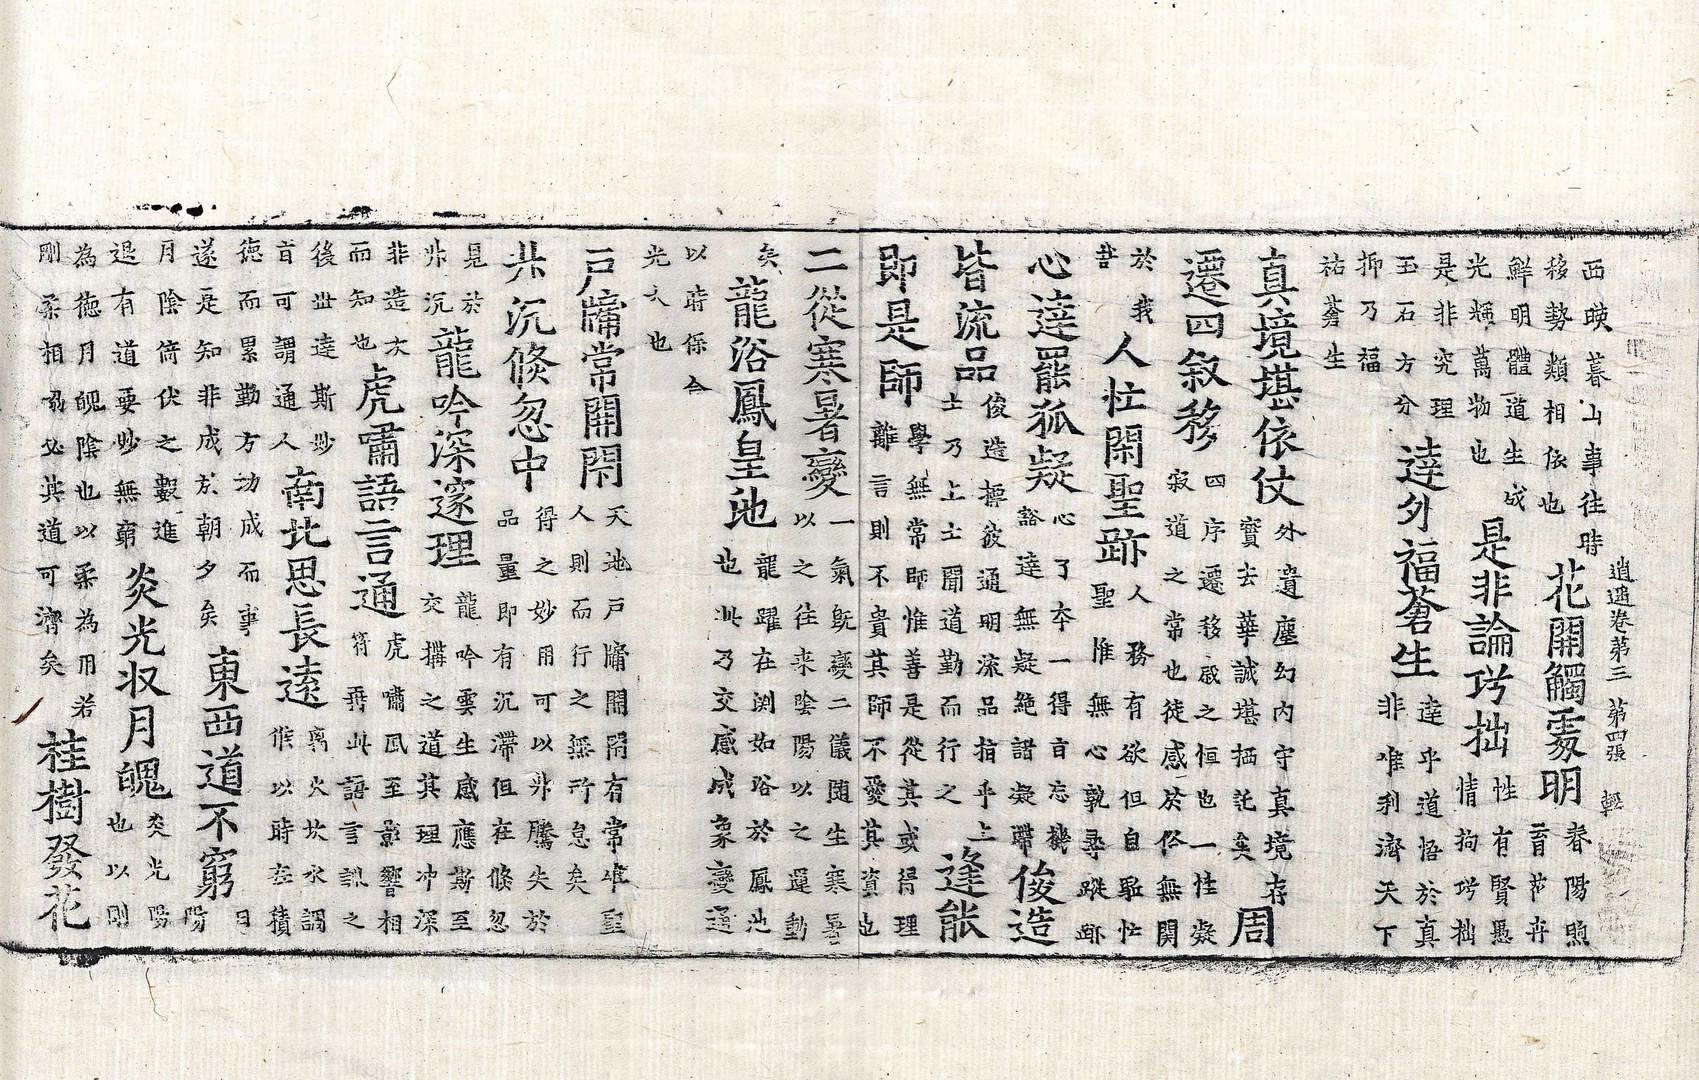 逍遥卷第三 第四張 輕
西暎暮山事往時
移勢類相依也
花開觸處明
春陽煦
育芇卉
鮮明體道生成
光輝萬物也
是非論巧拙
性有賢愚
情拘巧拙
是非究理
玉石方分
達外福蒼生
達乎道悟於真
非唯利濟天下
抑乃福
祐蒼生
真境堪依仗
外遺塵幻内守真境存
實去華誠堪栖託矣
周
遷四叙移
四序遷移歲之恒也一性凝
寂道之常也徒感於俗無関
於我
人忙閑聖跡
人務有欲但自駈忙
聖惟無心孰尋蹤跡
心達罷狐疑
心了夲一得㫖忘機
豁達無疑絶諸凝滯
俊造
皆流品
俊造摽彼通明流品指乎上
士乃上士聞道勤而行之
逢能
即是師
學無常師惟善是從其或得理
離言則不貴其師不愛其資也
二從寒暑變
一氣旣變二儀随生寒暑
以之往来陰陽以之運動
矣
龍浴鳳皇池
龍躍在渊如浴於鳳池
也此乃交感成象變通
以時保合
光大也
戸牖常開閇
天地戸牖開閇有常唯聖
人則而行之無所怠矣
升沉倐忽中
得之妙用可以升騰失於
品量即有沉滯但在倐忽
見於
升沉
龍吟深邃理
龍吟雲生感應斯至
交搆之道其理冲深
非造次
而知也
虎嘯語言通
虎嘯風至影響相
符再此語言訊之
後世達斯妙
㫖可謂通人
南北思長遠
离火坎水謂
候以時在積
德而累勤方功成而事
遂是知非成於朝夕矣
東西道不窮
日
陽
月陰倚伏之數進
退有道要妙無窮
炎光収月魄
炎光陽
也以剛
為德月魄陰也以柔為用若
剛柔相協必其道可濟矣
桂樹發花